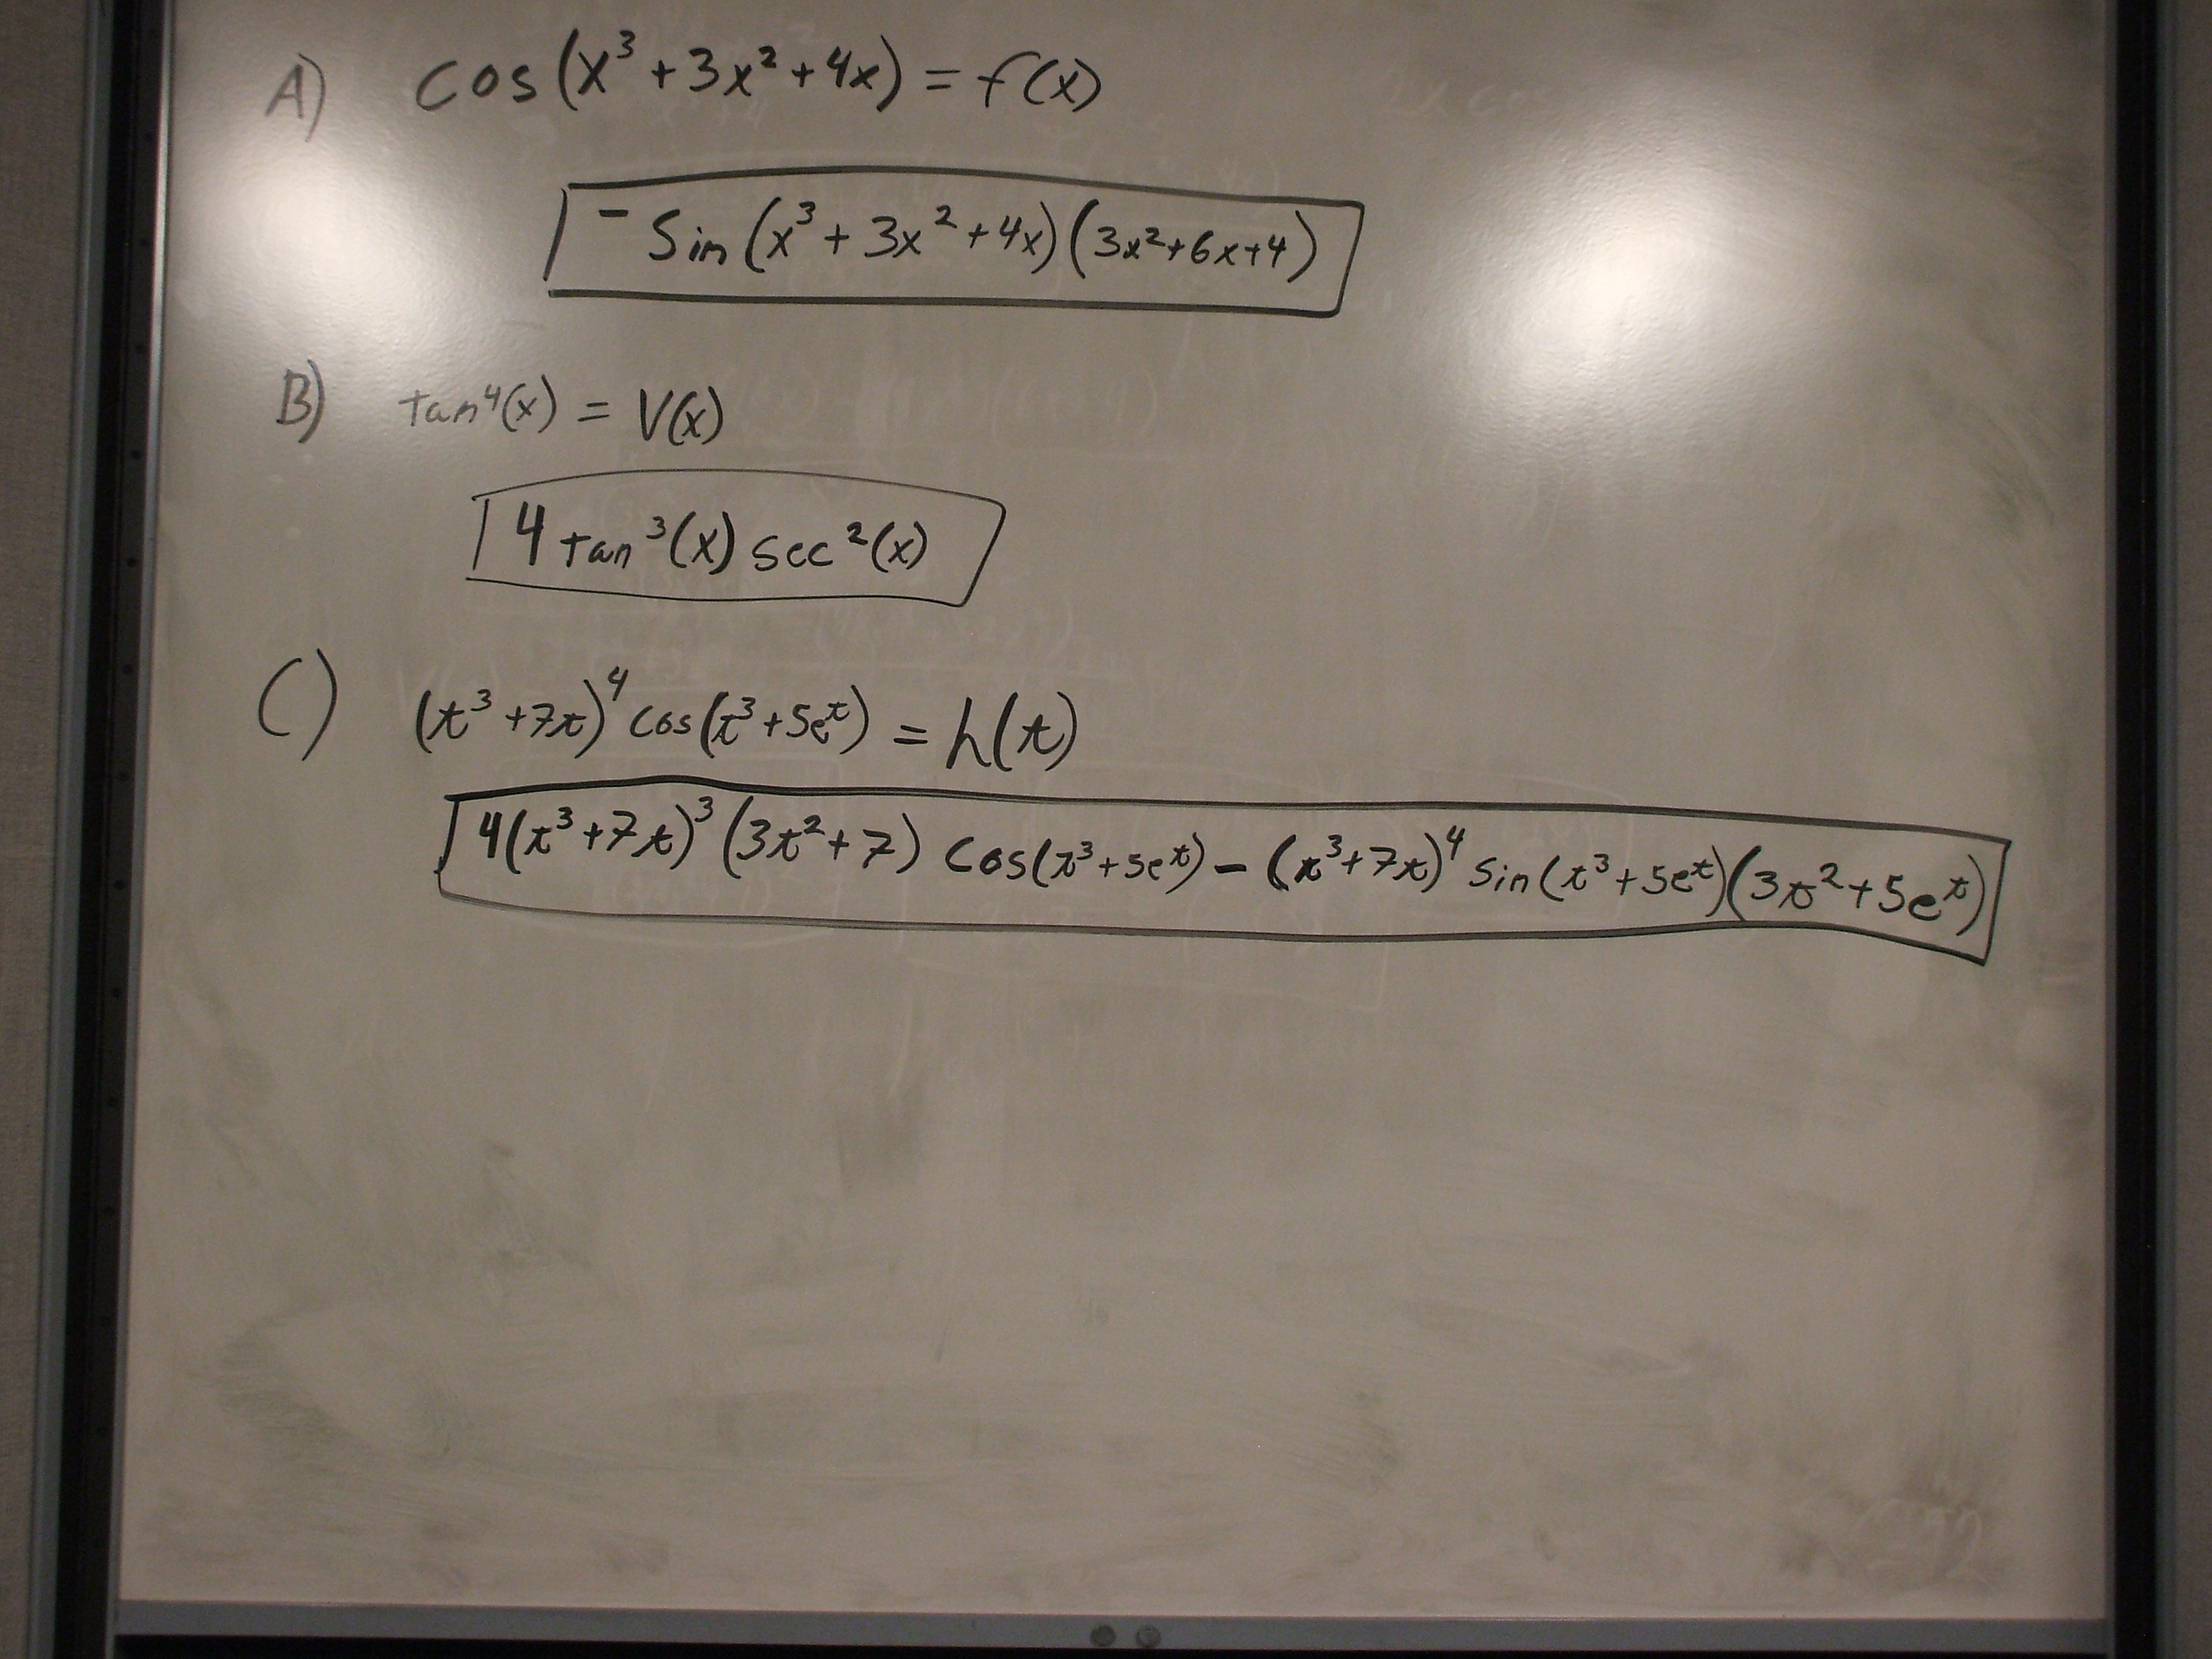 A) cos(x³+3x²+4x) = f(x)
-Sin(x³+3x²+4x)(3x²+6x+4)
B) tan⁴(x) = V(x)
4 tan³(x) sec²(x)
C) (t³+7t)⁴ cos(t³+5eᵗ) = h(t)
4(t³+7t)³(3t²+7) cos(t³+5eᵗ) - (t³+7t)⁴ sin(t³+5eᵗ)(3t²+5eᵗ)